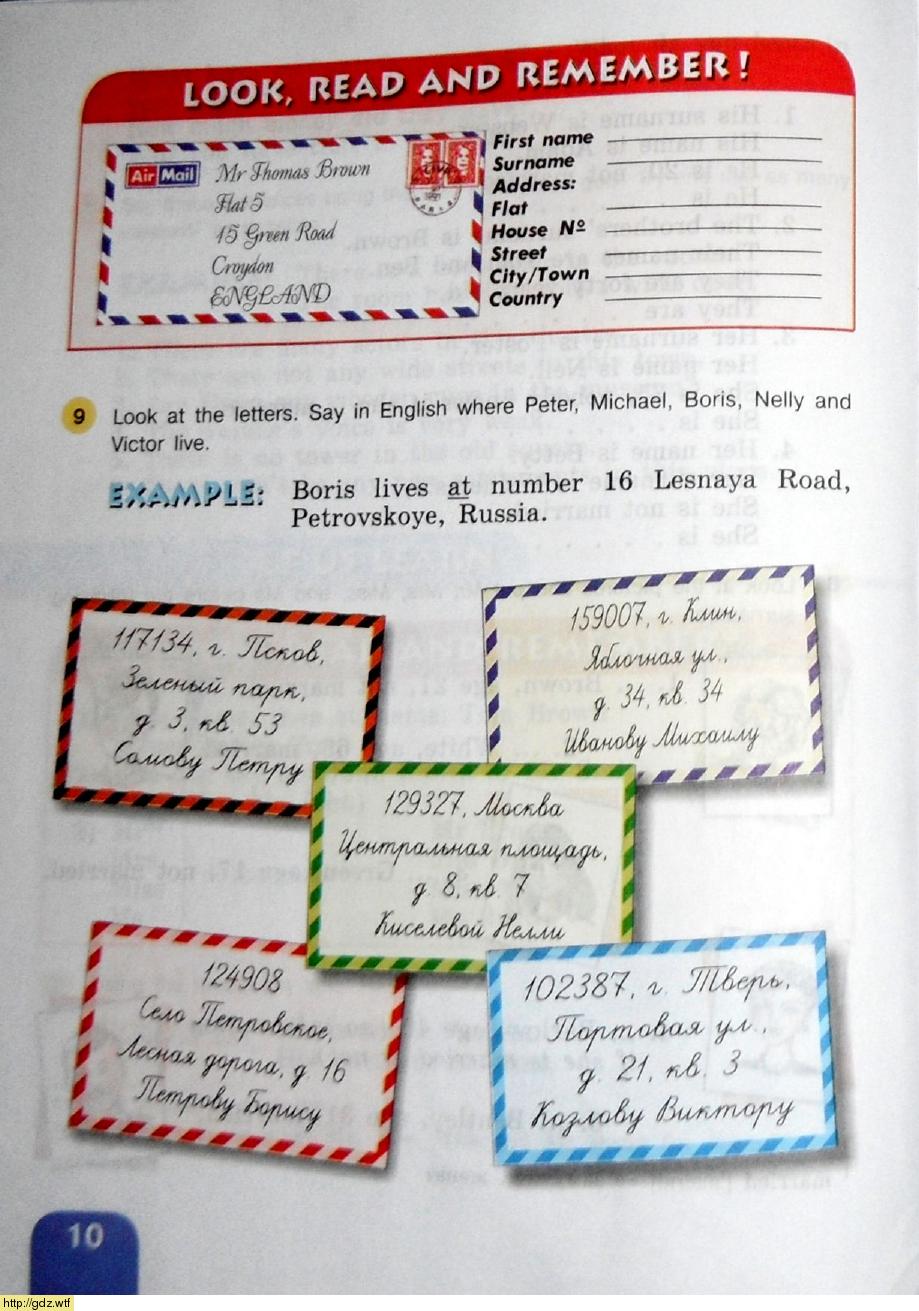 LOOK, READ AND REMEMBER!
Air Mail
Mr Thomas Brown
Flat 5
15 Green Road
Croydon
ENGLAND
First name
Surname
Address:
Flat
House Nº
Street
City/Town
Country
9 Look at the letters. Say in English where Peter, Michael, Boris, Nelly and
Victor live.
EXAMPLE: Boris lives at number 16 Lesnaya Road,
Petrovskoye, Russia.
117134, г. Псков,
Зеленый парк,
д. 3, кв. 53
Сомову Петру
159007, г. Клин,
Яблочная ул.,
д. 34, кв. 34
Иванову Михаилу
129327, Москва
Центральная площадь,
д. 8, кв. 7
Киселевой Нелли
124908
Село Петровское,
Лесная дорога, д. 16
Петрову Борису
102387, г. Тверь,
Портовая ул.,
д. 21, кв. 3
Козлову Виктору
10
http://gdz.wtf